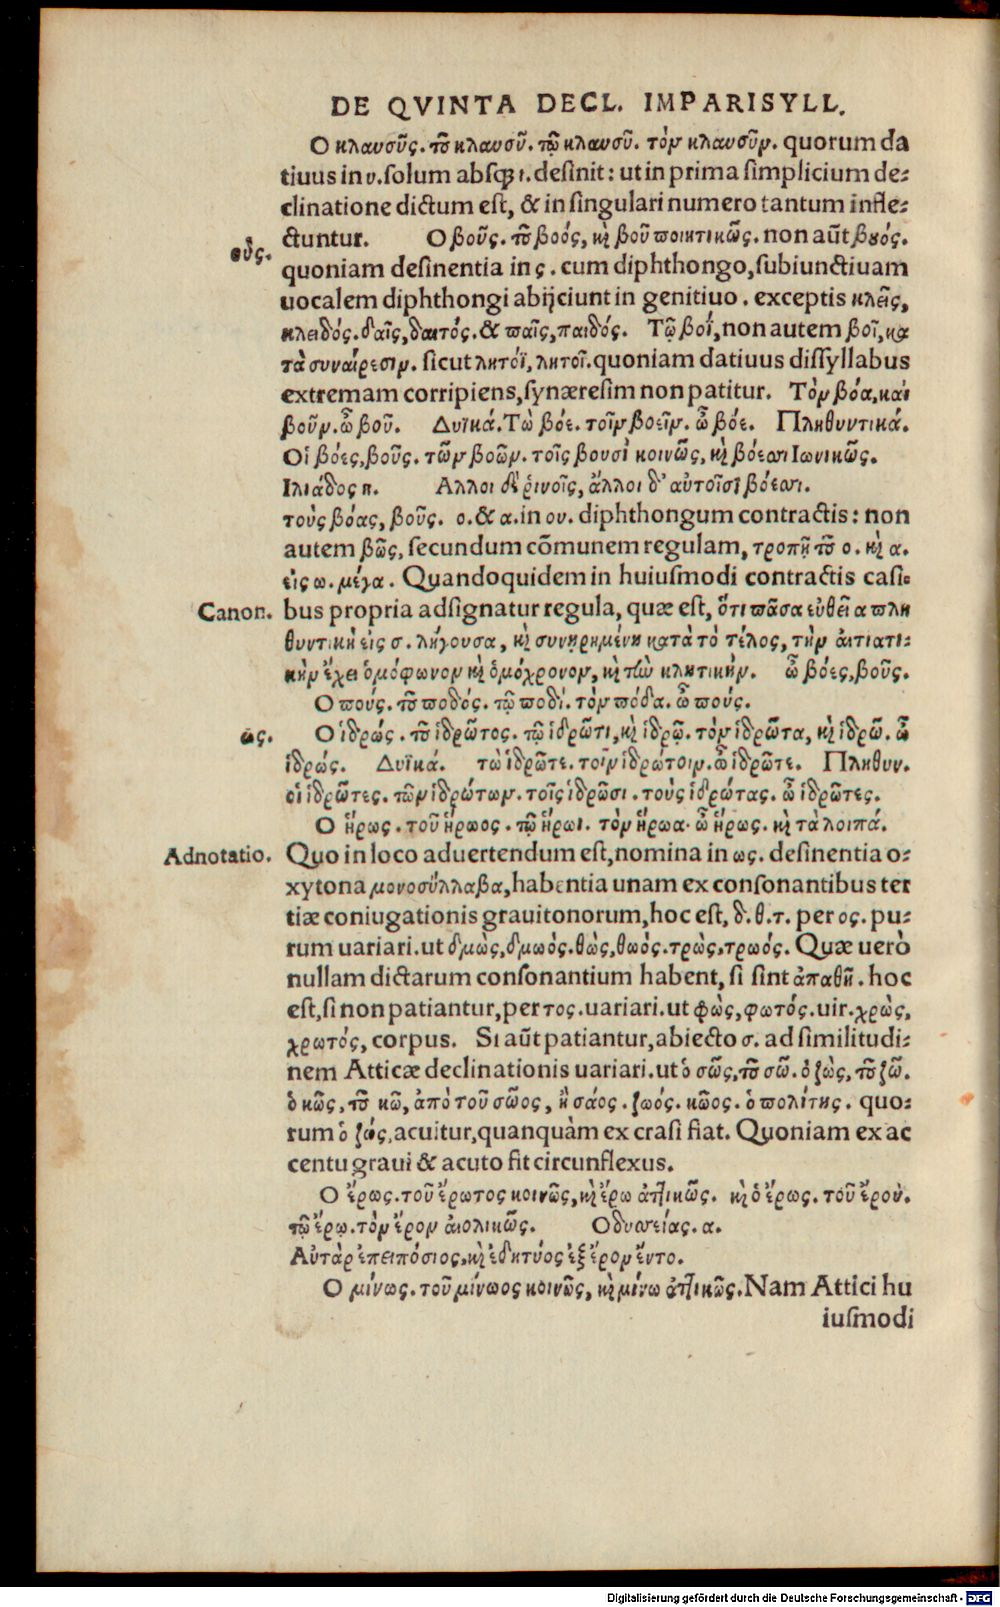 DE QVINTA DECL. IMPARISYLL.
Ο κλαυσῦς. τοῦ κλαυσῦ. τῷ κλαυσῦ. τὸν κλαυσῦν. quorum da
tiuus in υ. solum absq; ι. desinit: ut in prima simplicium de-
clinatione dictum est, & in singulari numero tantum infle-
ctuntur. Ο βοῦς. τοῦ βοός, καὶ βοῦ ποιητικῶς. non aūt βȣός.
οῦς.
quoniam desinentia in ς. cum diphthongo, subiunctiuam
uocalem diphthongi abijciunt in genitiuo. exceptis κλεῖς,
κλειδός. δαῖς, δαιτός. & παῖς, παιδός. Τῷ βοΐ, non autem βοῖ, κα
τὰ συναίρεσιν. sicut λητόϊ, λητοῖ. quoniam datiuus dissyllabus
extremam corripiens, synæresim non patitur. Τὸν βόα, καὶ
βοῦν. ὦ βοῦ. Δυϊκά. Τὼ βόε. τοῖν βοεῖν. ὦ βόε. Πληθυντικά.
Οἱ βόες, βοῦς. τῶν βοῶν. τοῖς βουσὶ κοινῶς, καὶ βόεσσι Ιωνικῶς.
Ιλιάδος η. Αλλοι δὲ ῥινοῖς, ἄλλοι δ' αὐτοῖσι βόεσσι.
τοὺς βόας, βοῦς. ο. & α. in ου. diphthongum contractis: non
autem βῶς, secundum cōmunem regulam, τροπῇ τοῦ ο. καὶ α.
εἰς ω. μέγα. Quandoquidem in huiusmodi contractis casi-
Canon. bus propria adsignatur regula, quæ est, ὅτι πᾶσα εὐθεῖα πλη
θυντικὴ εἰς σ. λήγουσα, καὶ συνῃρημένη κατὰ τὸ τέλος, τὴν αἰτιατι-
κὴν ἔχει ὁμόφωνον καὶ ὁμόχρονον, καὶ τὴν κλητικήν. ὦ βόες, βοῦς.
Ο πούς. τοῦ ποδός. τῷ ποδί. τὸν πόδα. ὦ πούς.
ώς. Ο ἱδρώς. τοῦ ἱδρῶτος. τῷ ἱδρῶτι, καὶ ἱδρῷ. τὸν ἱδρῶτα, καὶ ἱδρῶ. ὦ
ἱδρώς. Δυϊκά. τὼ ἱδρῶτε. τοῖν ἱδρώτοιν. ὦ ἱδρῶτε. Πληθυν.
οἱ ἱδρῶτες. τῶν ἱδρώτων. τοῖς ἱδρῶσι. τοὺς ἱδρώτας. ὦ ἱδρῶτες.
Ο ἥρως. τοῦ ἥρωος. τῷ ἥρωι. τὸν ἥρωα. ὦ ἥρως. καὶ τὰ λοιπά.
Adnotatio. Quo in loco aduertendum est, nomina in ως. desinentia o-
xytona μονοσύλλαβα, habentia unam ex consonantibus ter
tiæ coniugationis grauitonorum, hoc est, δ. θ. τ. per ος. pu-
rum uariari. ut δμὼς, δμωὸς. θὼς, θωὸς. τρὼς, τρωός. Quæ uerò
nullam dictarum consonantium habent, si sint ἀπαθῆ. hoc
est, si non patiantur, per τος. uariari. ut φὼς, φωτός. uir. χρὼς,
χρωτός, corpus. Si aūt patiantur, abiecto σ. ad similitudi-
nem Atticæ declinationis uariari. ut ὁ σῶς, τοῦ σῶ. ὁ ζὼς, τοῦ ζῶ.
ὁ κῶς, τοῦ κῶ, ἀπὸ τοῦ σῶος, ἢ σάος. ζωός. κῶος. ὁ πολίτης. quo-
rum ὁ ζώς, acuitur, quanquàm ex crasi fiat. Quoniam ex ac
centu graui & acuto fit circunflexus.
Ο ἔρως. τοῦ ἔρωτος κοινῶς, καὶ ἔρω ἀττικῶς. καὶ ὁ ἔρως. τοῦ ἔρου.
τῷ ἔρῳ. τὸν ἔρον αἰολικῶς. Οδυσσείας. α.
Αὐτὰρ ἐπεὶ πόσιος, καὶ ἐδητύος ἐξ ἔρον ἕντο.
Ο μίνως. τοῦ μίνωος κοινῶς, καὶ μίνω ἀττικῶς. Nam Attici hu
iusmodi
Digitalisierung gefördert durch die Deutsche Forschungsgemeinschaft - DFG